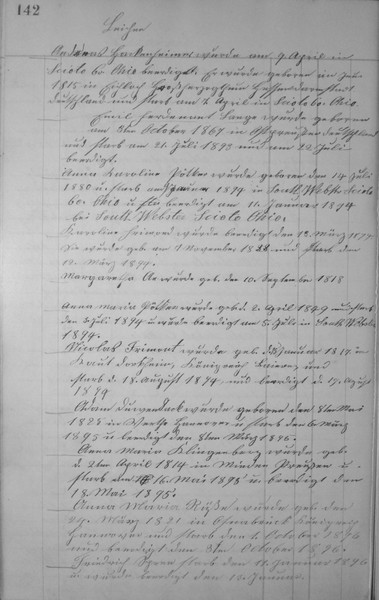 142
Leichen
Andreas Hackenheimer wurde am 9. April in
Scioto Co Ohio beerdigt. Er wurde geboren im
1815 in Großherzogthum Hessendarmstadt
Deutschland und starb am 7 April in Scioto Co. Ohio.
Emil Ferdinand Lange wurde geboren
am 3ten October 1867 in Ostpreußen Deutschland
und starb am 21. Juli 1893 und am 22 Juli
beerdigt.
Anna Karoline wurde geboren den 14 Juli
1880 u. starb am Januar 1894 in South Webster Scioto
Co. Ohio u beerdigt am 11. Januar 1894
bei South Webster Scioto Ohio.
Karoline wurde beerdigt den 12. März
Sie wurde geb. am 1 November und starb den
12. März
Margaretha wurde geb. den 10. September 1818
Anna Maria wurde geb d. 2. April 1849 und starb
den Juli 1894 u wurde beerdigt am 5. Juli in South Webster
1894.
Nicolas Trimont wurde geb. Januar 1817 in
Königreich Baiern und
starb d. 18. August 1894, und beerdigt d. 19. August
1894
Adam wurde geboren den 8ten Mai
1828 in Hanover u starb den 6. März
1895 u beerdigt den 8ten März 1895.
Anna Maria Klingenberg wurde geb
d. 2ten April 1814 in Minden Preußen u.
starb den 16. Mai 1895 u. beerdigt den
18. Mai 1895.
Anna Maria wurde geb den
29. März 1821 in Osnabrück Königreich
Hannover und starb den 1. October 1896
und beerdigt den 3ten October 1896.
Friedrich starb den 11. Januar 1896
u. wurde beerdigt den 13. Januar.